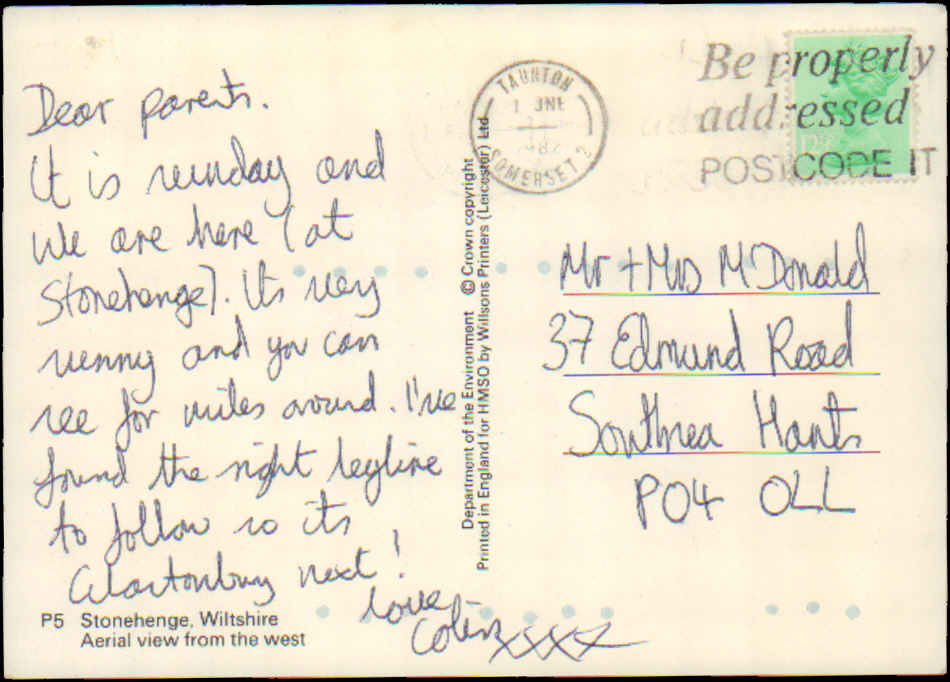 Dear parents.
It is sunday and
we are here (at
Stonehenge). Its very
sunny and you can
see for miles around. I've
found the right leyline
to follow so its
Glastonbury next!
love
Colin xxxx
P5 Stonehenge, Wiltshire
Aerial view from the west
Department of the Environment © Crown copyright
Printed in England for HMSO by Willsons Printers (Leicester) Ltd
TAUNTON
1 JNE
SOMERSET 2
Be properly
addressed
POSTCODE IT
Mr + Mrs McDonald
37 Edmund Road
Southsea Hants
PO4 0LL